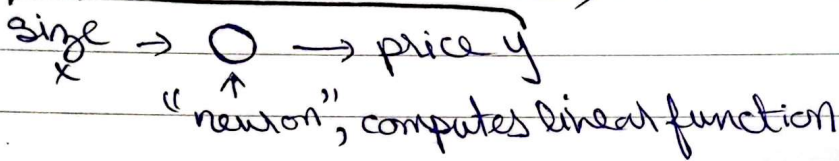 size → O → price y
x ↑
"neuron", computes linear function